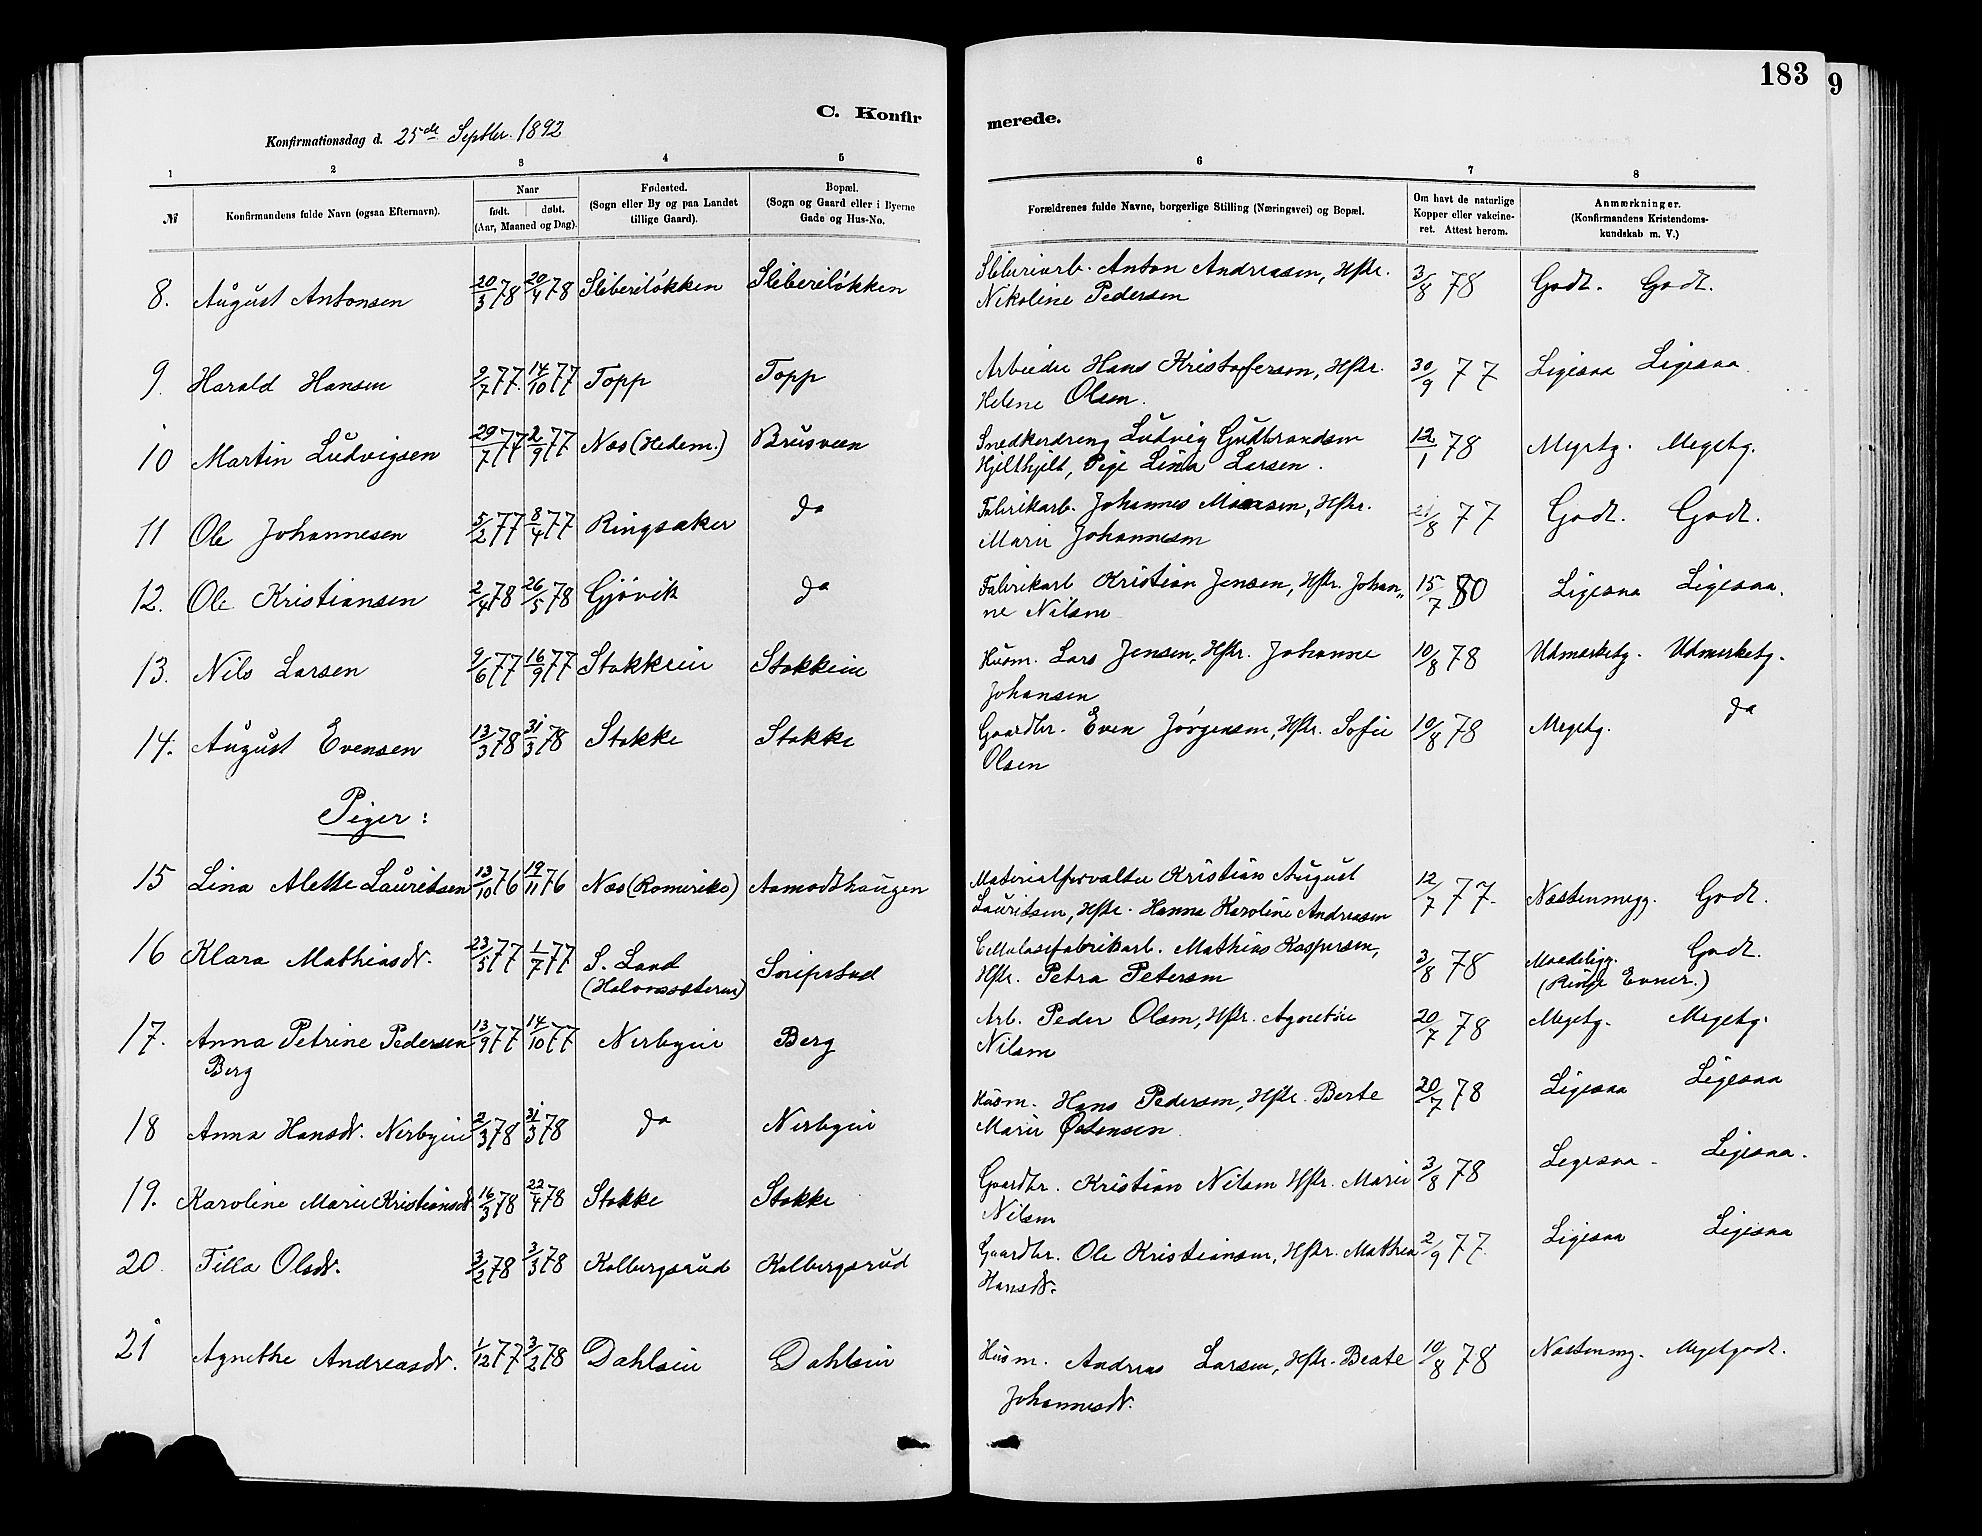 183
9
C. Konfirmerede.
Konfirmationsdag d. 25de Septbr. 1892
1 2 3 4 5 6 7 8
№ Konfirmandens fulde Navn (ogsaa Efternavn). Naar født. døbt. (Aar, Maaned og Dag). Fødested. (Sogn eller By og paa Landet tillige Gaard). Bopæl. (Sogn og Gaard eller i Byerne Gade og Hus-No. Forældrenes fulde Navne, borgerlige Stilling (Næringsvei) og Bopæl. Om havt de naturlige Kopper eller vakcineret. Attest herom. Anmærkninger. (Konfirmandens Kristendomskundskab m. V.)
8. August Antonsen 20/3 78 20/4 78 Sliberiløkken Sliberiløkken Sliberiarb. Anton Andreasen, Hstr. 3/8 78 Godt. Godt.
Nikoline Pedersen
9. Harald Hansen 2/7 77 14/10 77 Topp Topp Arbeider Hans Kristofersen, Hstr. 30/9 77 Ligesaa Ligesaa
Helene Olsen.
10 Martin Ludvigsen 29/7 77 2/9 77 Næs (Hedem.) Brusveen Snedkerdreng Ludvig Gudbrandsen 12/1 78 Megetg. Megetg.
Pige Lina Larsen.
11 Ole Johannesen 5/2 77 8/4 77 Ringsaker do Fabrikarb. Johannes Hstr. /8 77 Godt. Godt.
Marie Johannesen
12. Ole Kristiansen 2/4 78 26/5 78 Gjøvik do Fabrikarb Kristian Jensen, Hstr. Johan„ 15/7 80 Ligesaa Ligesaa.
ne Nilsen
13. Nils Larsen 9/6 77 16/9 77 Stokkeeie Stokkeie Husm. Lars Jensen, Hstr. Johanne 10/8 78 Udmærketg. Udmerketg.
Johansen
14. August Evensen 13/3 78 31/3 78 Stokke Stokke Gaardbr. Even Jørgensen, Hstr. Sofie 10/8 78 Megetg. do
Olsen
Piger:
15 Lina Alette Lauritsen 13/10 76 19/11 76 Næs (Romerike) Aamodthaugen Materialforvalter Kristian August 12/7 77. Næstenmegg. Godt.
Lauritsen, Hstr. Hanna Karoline Andreasen
16 Klara Mathiasdr. 23/5 77 1/7 77 S. Land Cellulosefabrikarb. Mathias Kaspersen, 3/8 78 Maadeligg. Godt.
Hstr. Petra Petersen (Ringe Evner.)
17. Anna Petrine Pedersen 13/9 77 14/10 77 Nerbyeie Berg Arb. Peder Olsen, Hstr. Agnetøe 20/7 78 Megetg. Megetg.
Berg Nilsen
18 Anna Hansdr. Nerbyeie 2/3 78 31/3 78 do Nerbyeie Husm. Hans Pedersen, Hstr. Berte 20/7 78 Ligesaa Ligesaa
Marie Østensen
19. Karoline Marie Kristiansdr. 16/3 78 22/4 78 Stokke Stokke Gaardbr. Kristian Nilsen Hstr. Marie 3/8 78 Ligesaa Ligesaa.
Nilsen
20. Tilla Olsdr. 3/2 78 3/3 78 Kolbergsrud Kolbergsrud Gaardbr. Ole Kristiansen, Hstr. Mathea 2/9 77 Ligesaa Ligesaa
Hansdr.
21 Agnethe Andreasdr. 1/12 77 3/2 78 Dahlseie Dahlseie Husm. Andreas Larsen, Hstr. Beate 10/8 78 Næstenmg. Megetgodt.
Johannesdr.